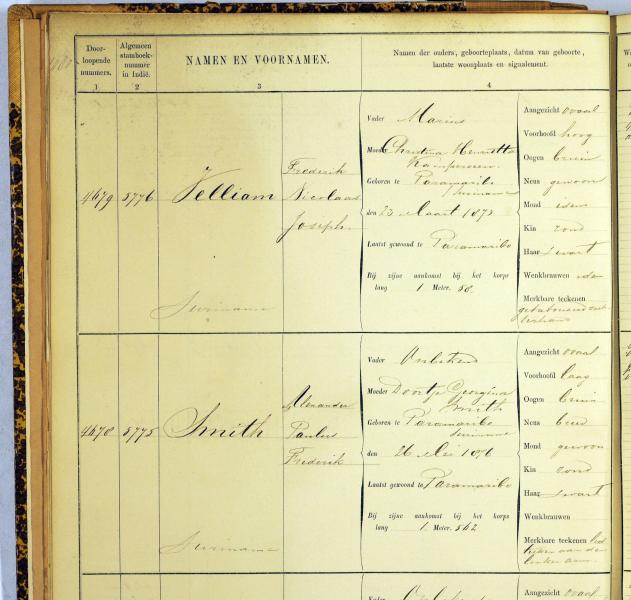 Door-
loopende
nummers.
Algemeen
stamboek-
nummer
in Indië.
NAMEN EN VOORNAMEN.
Namen der ouders, geboorteplaats, datum van geboorte,
laatste woonplaats en signalement.
1
2
3
4
4679
5776
Telliam
Frederik
Nicolaas
Joseph.
Suriname
Vader Marius
Moeder Christina Henriette
Geboren te Paramaribo
Suriname
den 23 Maart 1875
Laatst gewoond te Paramaribo
Bij zijne aankomst bij het korps
lang 1 Meter. 58.
Aangezicht ovaal
Voorhoofd hoog
Oogen bruin
Neus gewoon
Mond idem
Kin rond
Haar zwart
Wenkbrauwen idem
Merkbare teekenen
4678
5775
Smith
Alexander
Paulus
Frederik
Suriname
Vader Onbekend
Moeder Doortje Georgina
Smith
Geboren te Paramaribo
Suriname
den 26 Mei 1876
Laatst gewoond te Paramaribo
Bij zijne aankomst bij het korps
lang 1 Meter. 562
Aangezicht ovaal
Voorhoofd laag
Oogen bruin
Neus breed
Mond gewoon
Kin rond
Haar zwart
Wenkbrauwen
Merkbare teekenen
aan de
linker arm.
Vader
Aangezicht ovaal